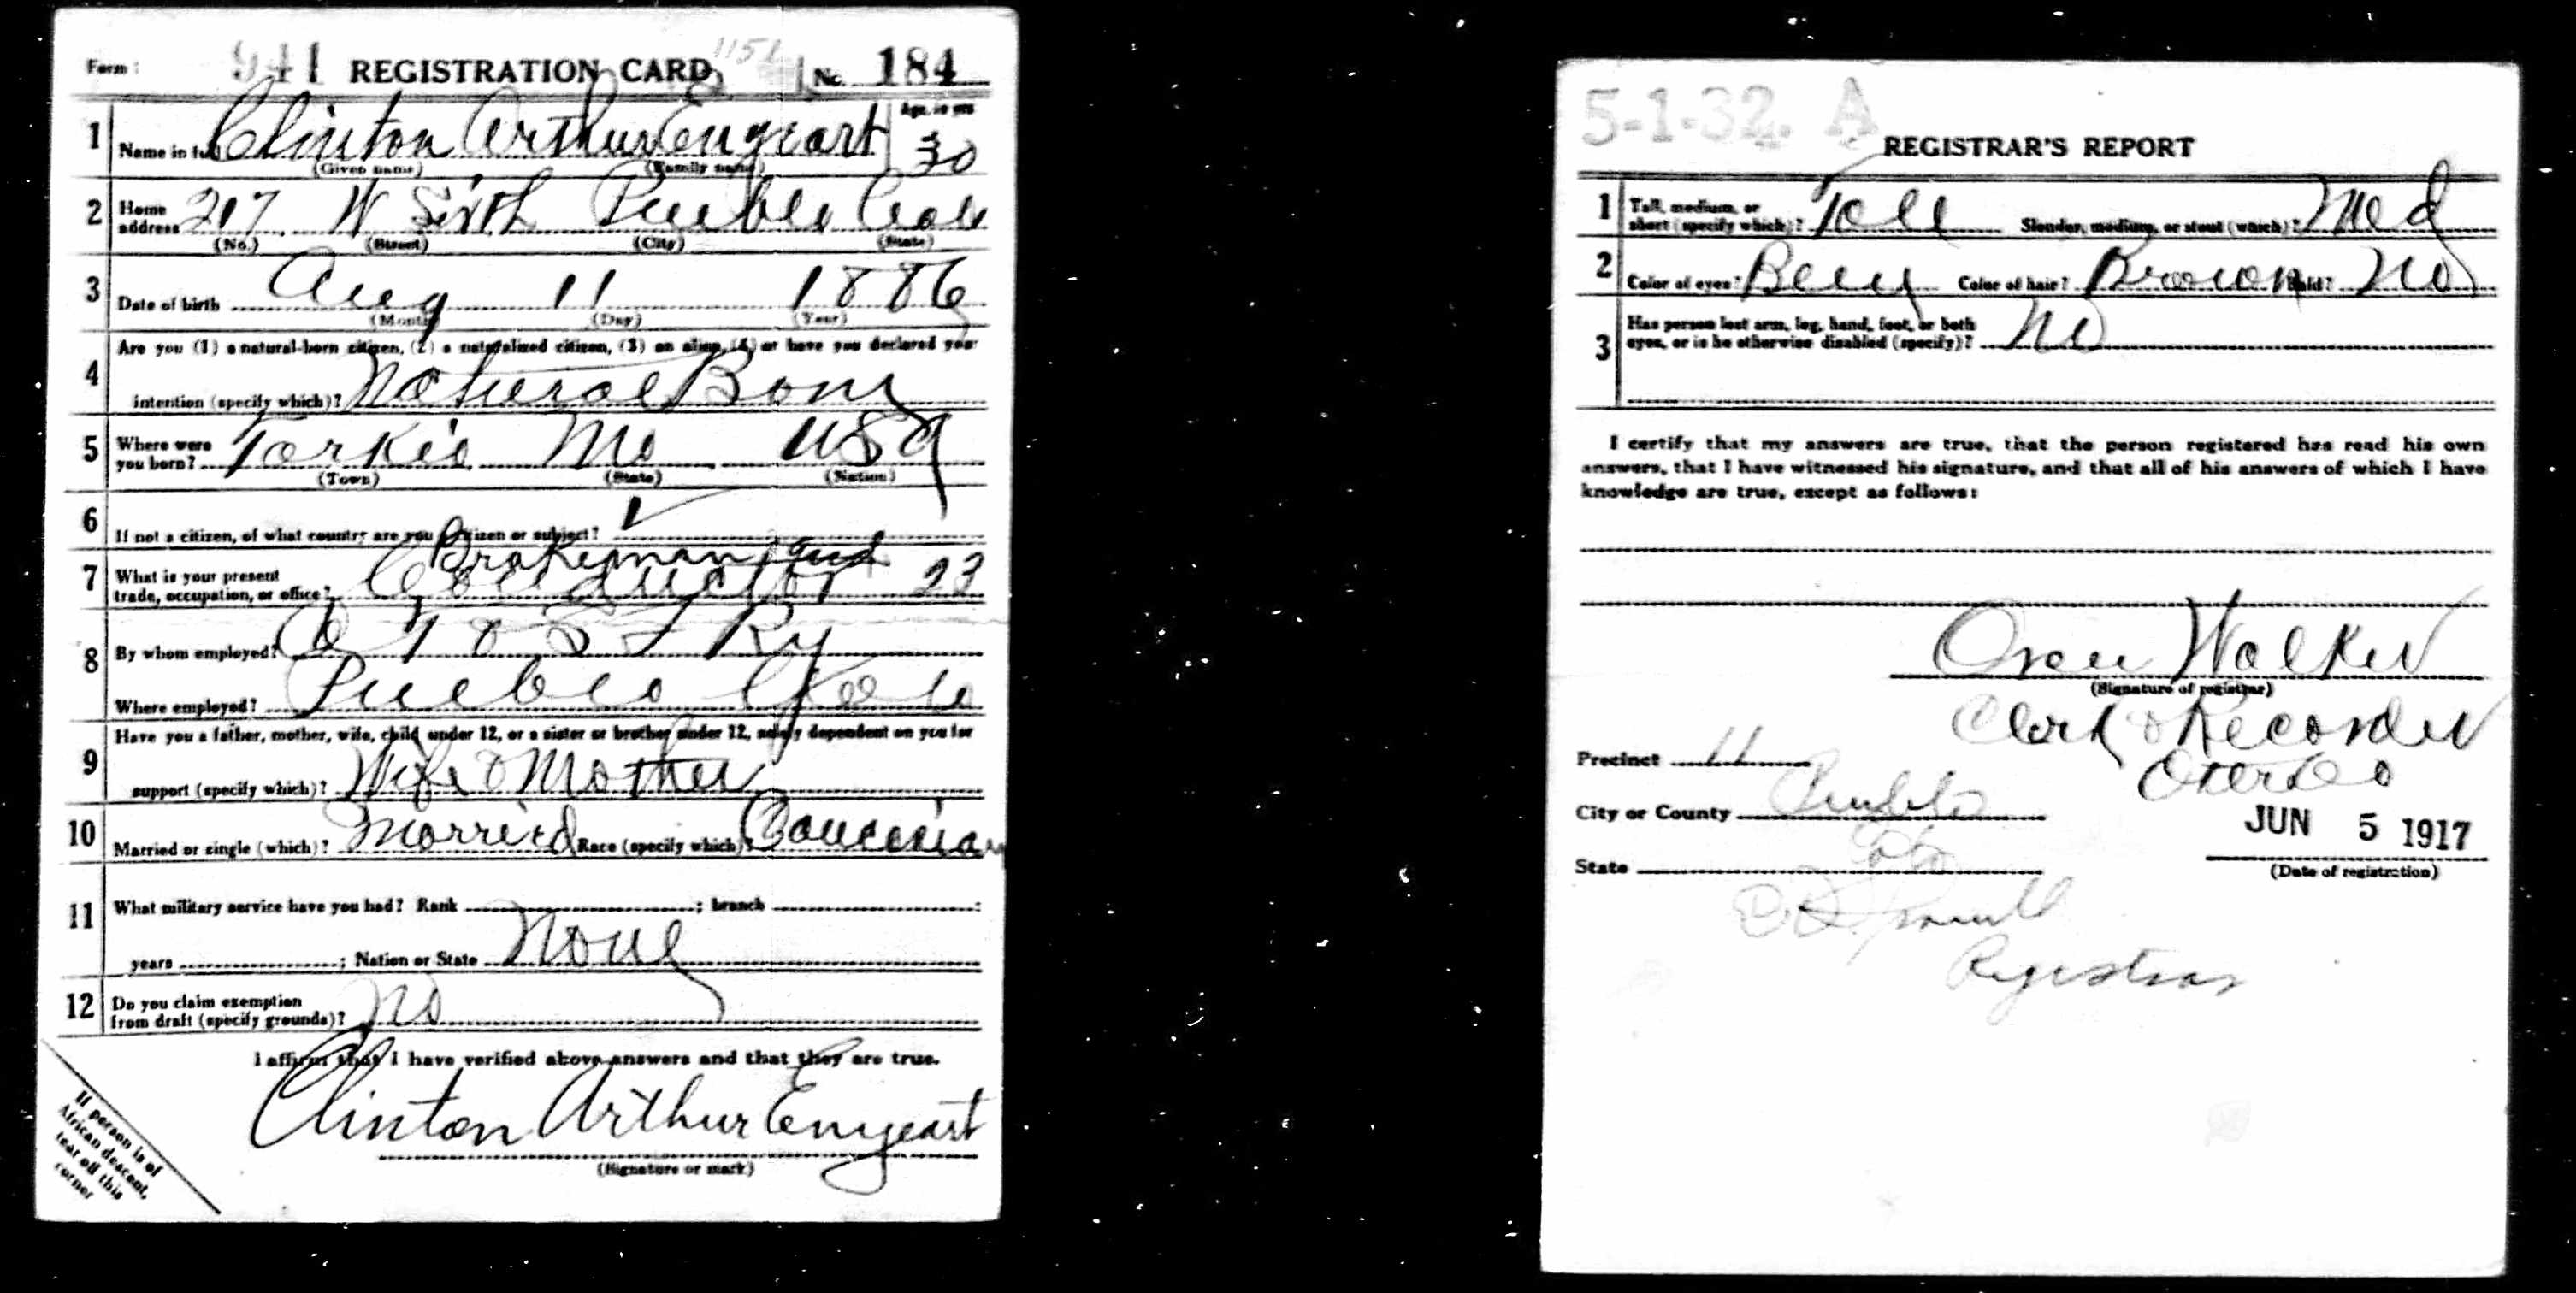 Form 1 941 REGISTRATION CARD 1151 No. 184
1 Name in full Clinton Arthur Engeart Age, in yrs 30
(Given name) (Family name)
2 Home address 217 W Sixth Pueblo Colo
(No.) (Street) (City) (State)
3 Date of birth Aug 11 1886
(Month) (Day) (Year)
4 Are you (1) a natural-born citizen, (2) a naturalized citizen, (3) an alien, (4) or have you declared your
intention (specify which)? Natural Born
5 Where were you born? Tarkio Mo USA
(Town) (State) (Nation)
6 If not a citizen, of what country are you a citizen or subject?
Brakeman and
7 What is your present trade, occupation, or office? Conductor 23
8 By whom employed? A T & S F Ry
Where employed? Pueblo Colo
9 Have you a father, mother, wife, child under 12, or a sister or brother under 12, solely dependent on you for
support (specify which)? Wife & Mother
10 Married or single (which)? Married Race (specify which)? Caucasian
11 What military service have you had? Rank ; branch ;
years ; Nation or State None
12 Do you claim exemption from draft (specify grounds)? No
I affirm that I have verified above answers and that they are true.
Clinton Arthur Enyeart
(Signature or mark)
If person is of
African descent,
tear off this
corner
5-1-32. A
REGISTRAR'S REPORT
1 Tall, medium, or short (specify which)? Tall Slender, medium, or stout (which)? Med
2 Color of eyes? Blue Color of hair? Brown Bald? No
3 Has person lost arm, leg, hand, foot, or both
eyes, or is he otherwise disabled (specify)? No
I certify that my answers are true, that the person registered has read his own
answers, that I have witnessed his signature, and that all of his answers of which I have
knowledge are true, except as follows:
Walker
(Signature of registrar)
Clerk & Recorder
Otero Co
Precinct 11
City or County Pueblo
JUN 5 1917
State Colo
(Date of registration)
Registrar